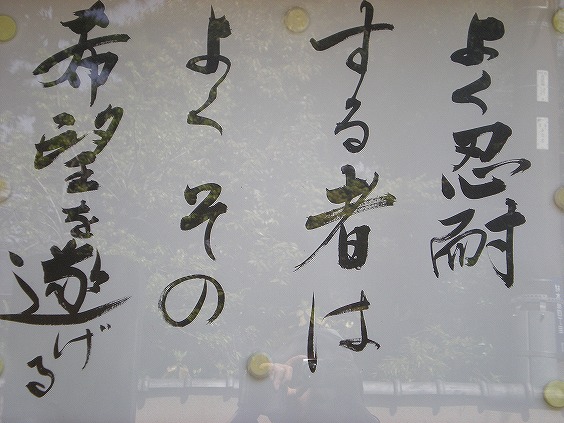 よく忍耐
する者は
よくその
希望を遂げる